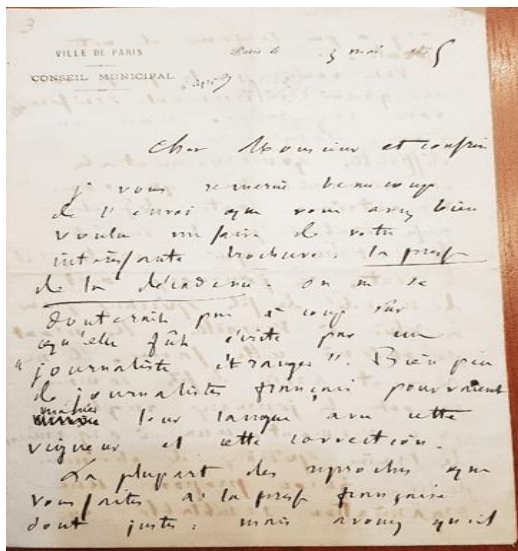 3
VILLE DE PARIS
CONSEIL MUNICIPAL
Paris le 3 mai 1885
Cher Monsieur et confrère
je vous remercie beaucoup
de l'envoi que vous avez bien
voulu me faire de votre
intéressante brochure : la presse
de la décadence. On ne se
douterait pas à coup sûr
qu'elle fût écrite par un
"journaliste étranger". Bien peu
de journalistes français pourraient
manier leur langue avec cette
vigueur et cette correction.
La plupart des reproches que
vous faites à la presse française
sont justes : mais avouez qu'il